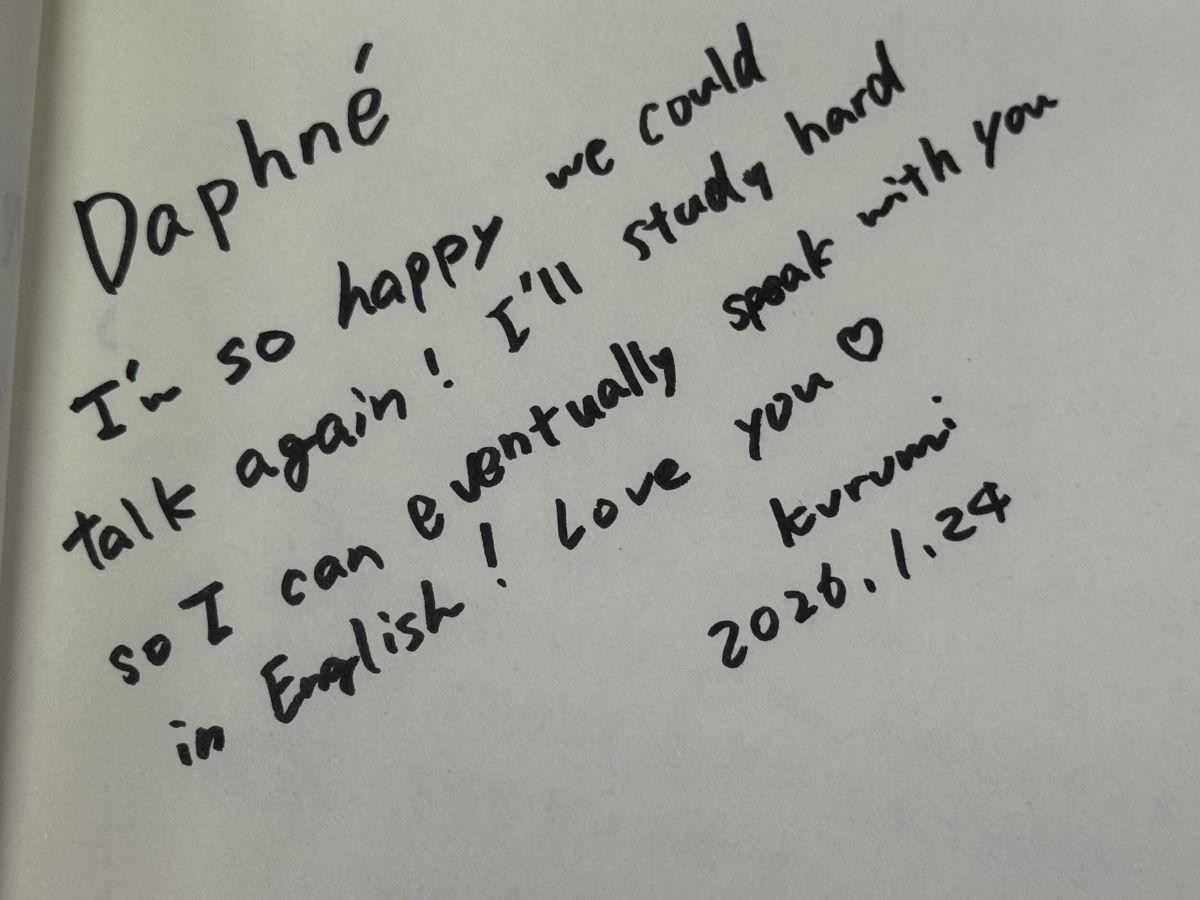 Daphné
I'm so happy we could
talk again! I'll study hard
so I can eventually speak with you
in English! Love you ♡
kurumi
2026.1.24